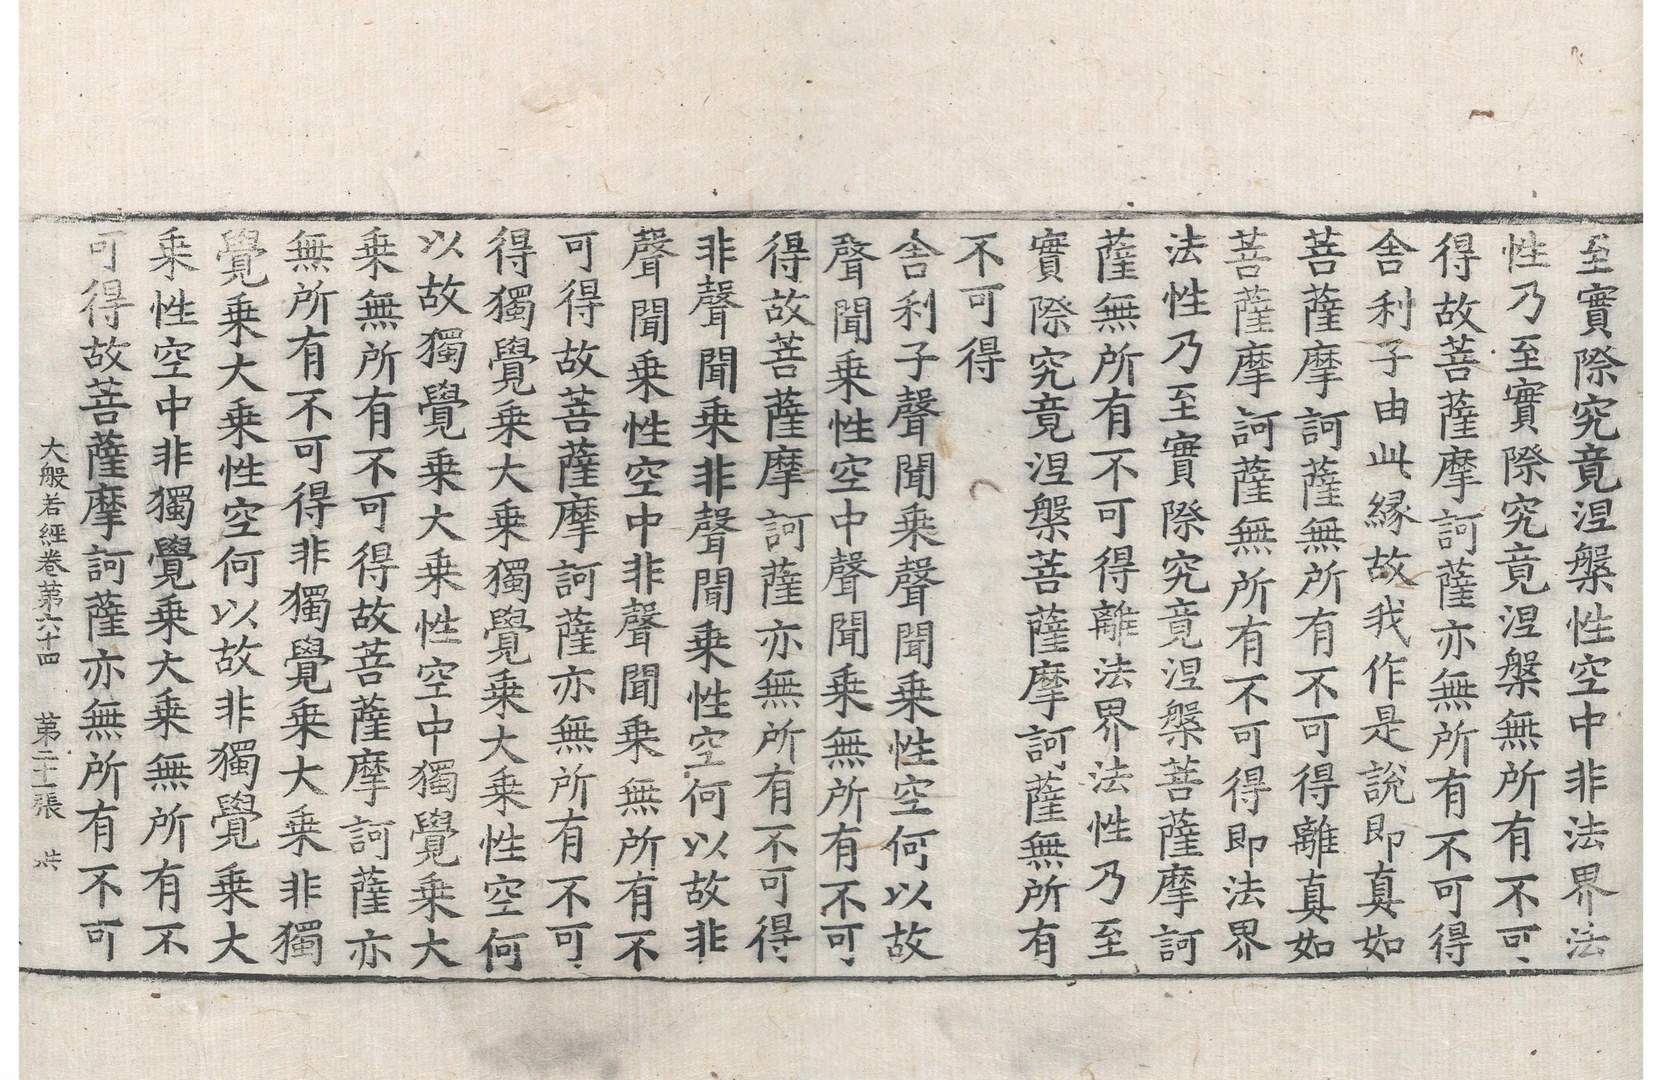 至實際究竟涅槃性空中非法界法
性乃至實際究竟涅槃無所有不可
得故菩薩摩訶薩亦無所有不可得
舍利子由此緣故我作是說即真如
菩薩摩訶薩無所有不可得離真如
菩薩摩訶薩無所有不可得即法界
法性乃至實際究竟涅槃菩薩摩訶
薩無所有不可得離法界法性乃至
實際究竟涅槃菩薩摩訶薩無所有
不可得
舍利子聲聞乗聲聞乗性空何以故
聲聞乗性空中聲聞乗無所有不可
得故菩薩摩訶薩亦無所有不可得
非聲聞乗非聲聞乗性空何以故非
聲聞乗性空中非聲聞乗無所有不
可得故菩薩摩訶薩亦無所有不可
得獨覺乗大乗獨覺乗大乗性空何
以故獨覺乗大乗性空中獨覺乗大
乗無所有不可得故菩薩摩訶薩亦
無所有不可得非獨覺乗大乗非獨
覺乗大乗性空何以故非獨覺乗大
乗性空中非獨覺乗大乗無所有不
可得故菩薩摩訶薩亦無所有不可
大般若經卷第六十四 第二十一張